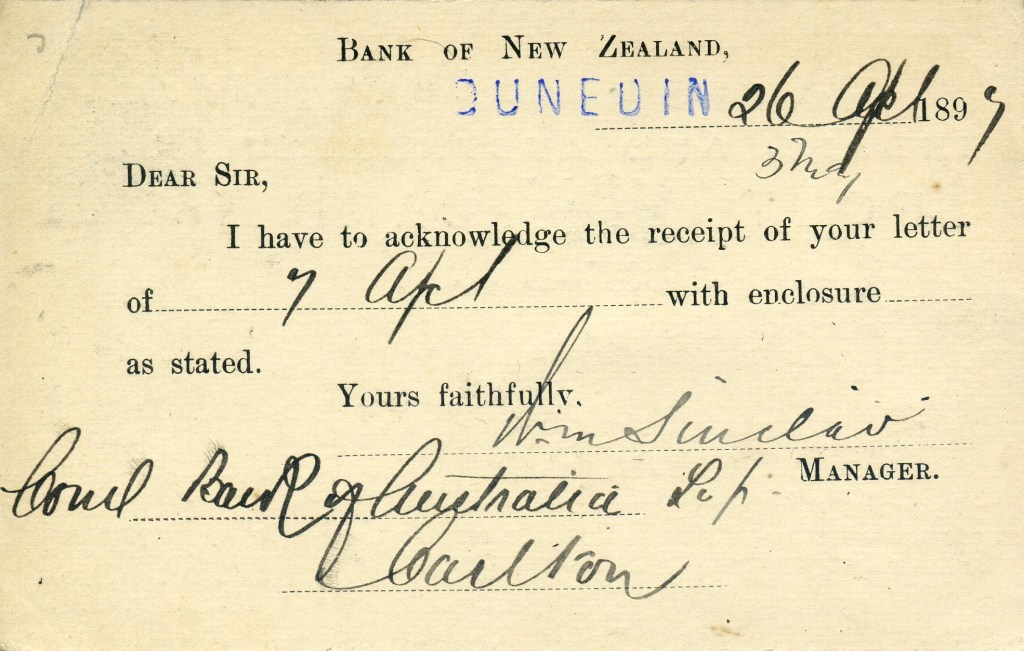 BANK OF NEW ZEALAND,
DUNEDIN 26 Apl 1897
3 May
DEAR SIR,
I have to acknowledge the receipt of your letter
of 7 Apl with enclosure
as stated.
Yours faithfully,
Wm Sinclair
MANAGER.
Coml Bank of Australia
Carlton